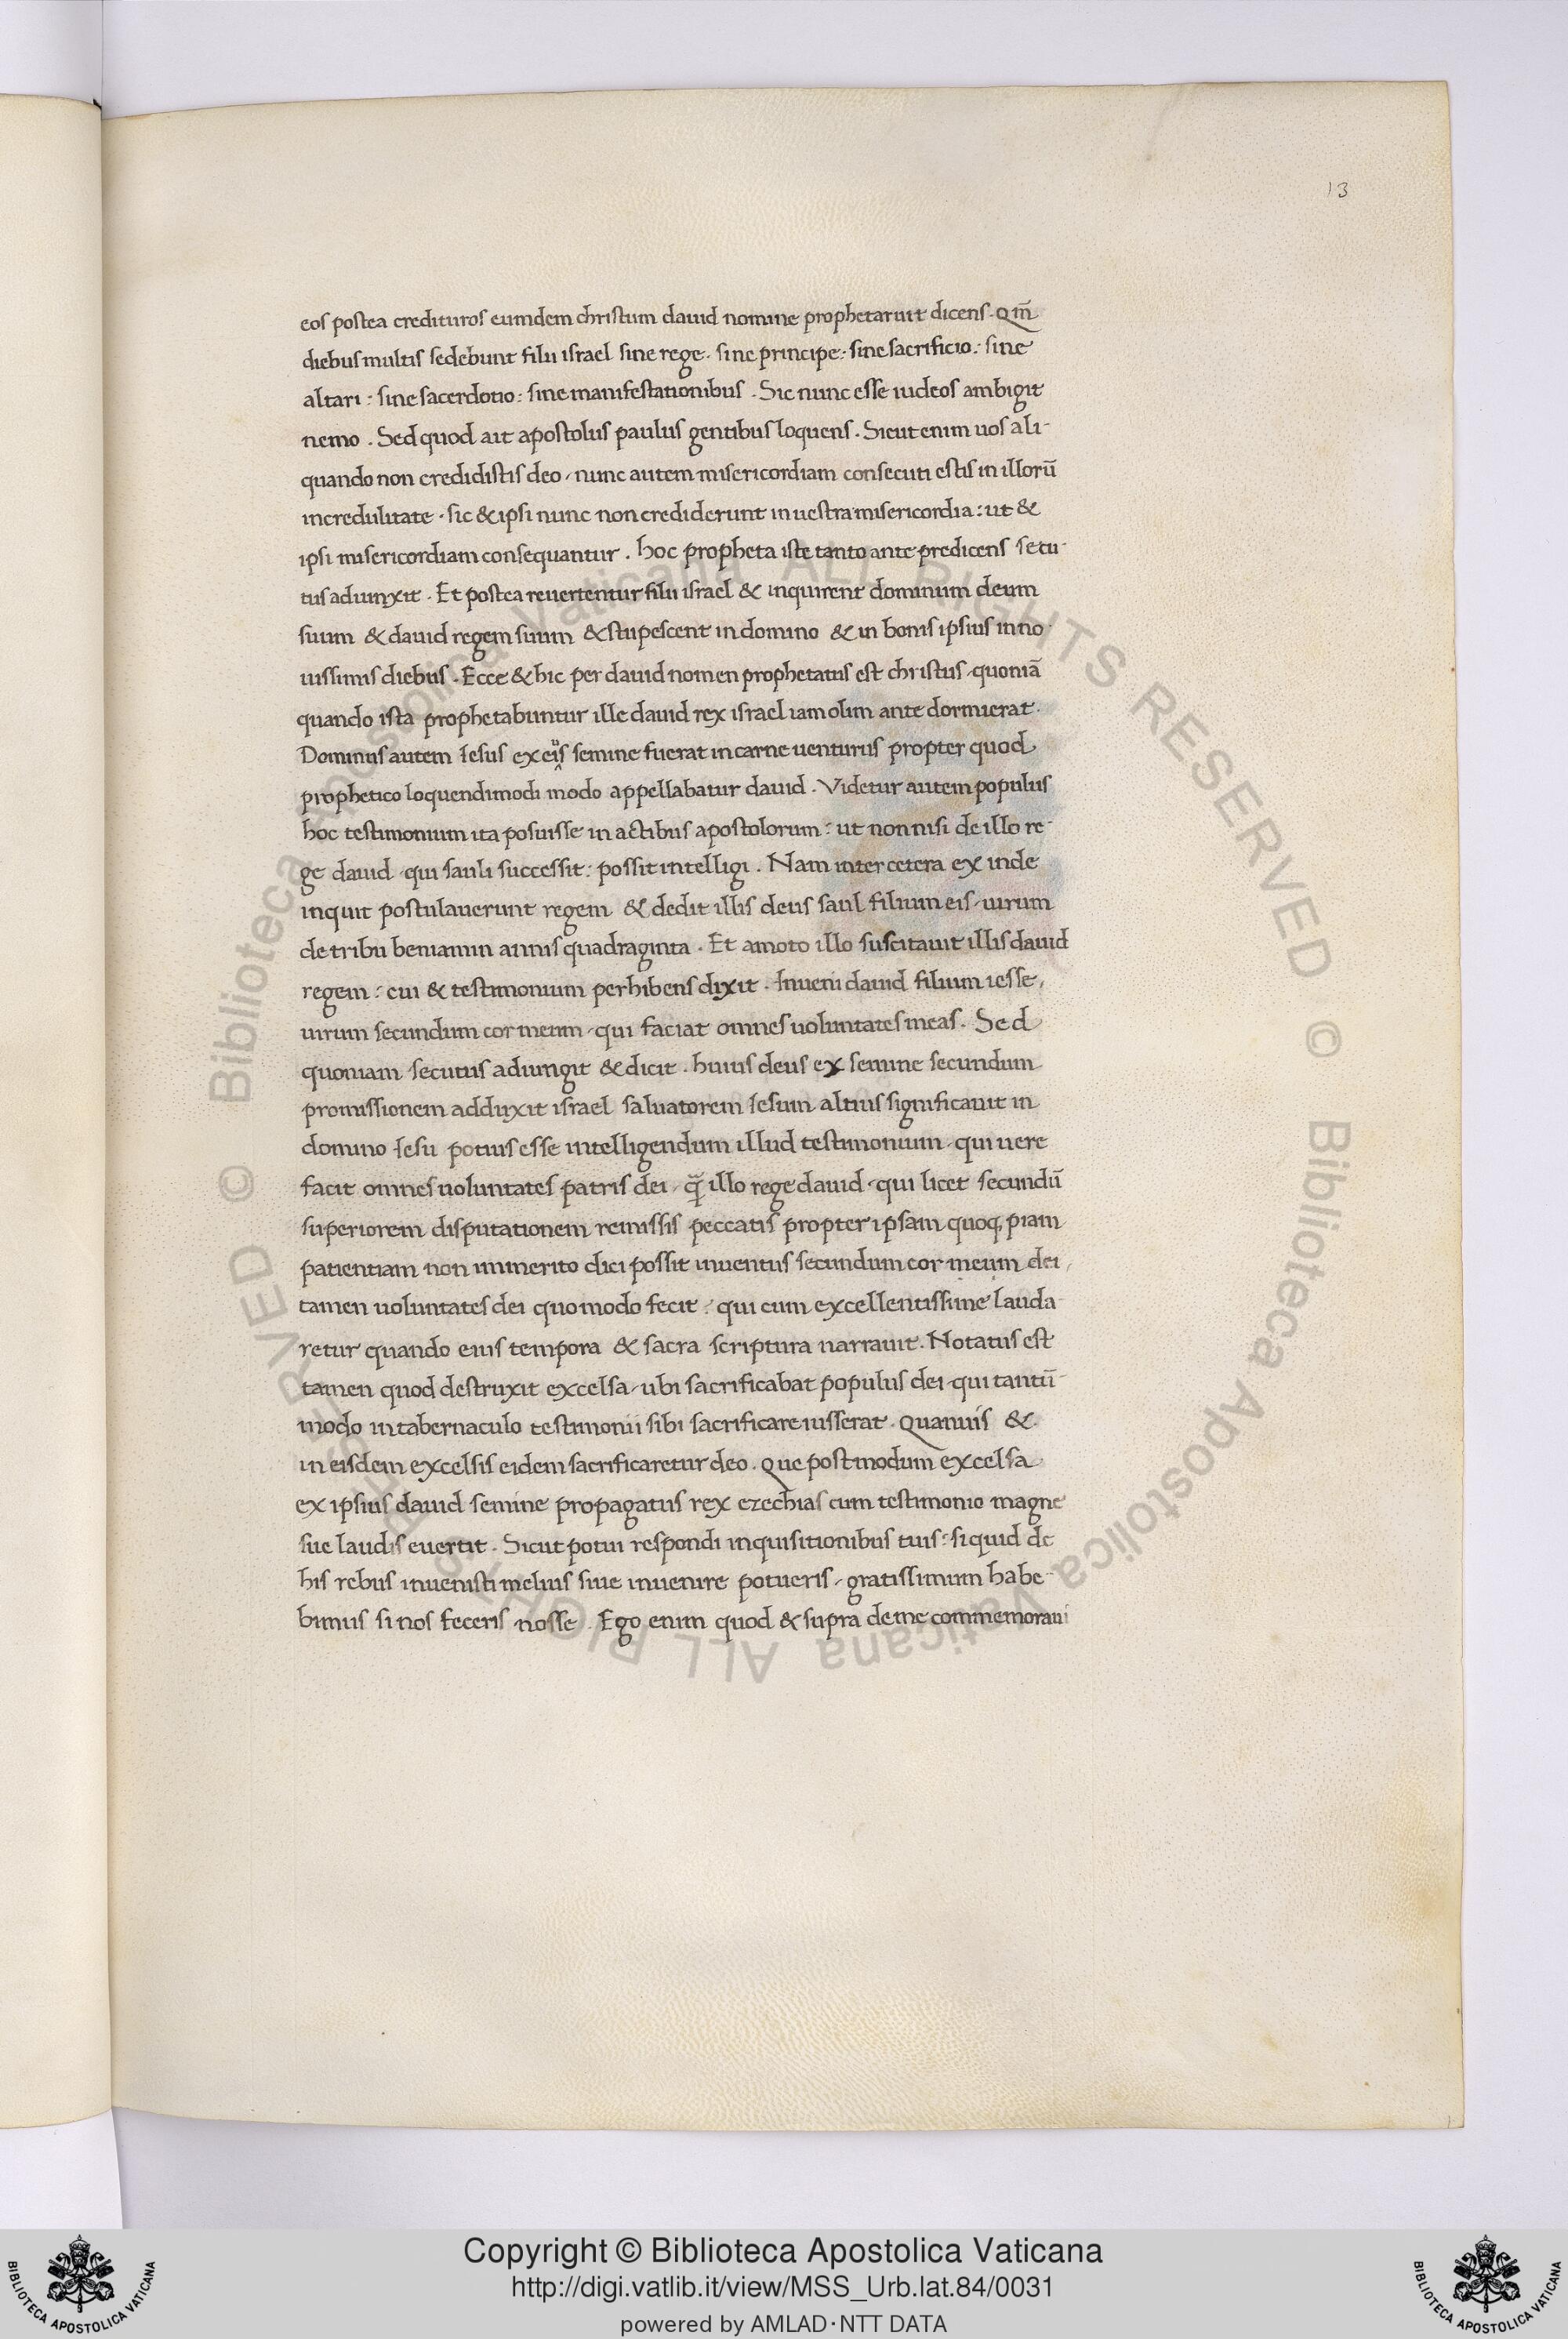 13
eos postea credituros eumdem christum dauid nomine prophetaruit dicens. Qm̄
diebus multis sedebunt filii israel sine rege. sine principe: sine sacrificio: sine
altari: sine sacerdotio: sine manifestationibus. Sic nunc esse iudeos ambigit
nemo. Sed quod ait apostolus paulus gentibus loquens. Sicut enim uos ali-
quando non credidistis deo, nunc autem misericordiam consecuti estis in illorū
incredulitate. sic & ipsi nunc non crediderunt in uestra misericordia: ut &
ipsi misericordiam consequantur. hoc propheta iste tanto ante predicens secu-
tus adiunxit. Et postea reuertentur filii israel & inquirent dominum deum
suum & dauid regem suum & stupescent in domino & in bonis ipsius in no-
uissimis diebus. Ecce & hic per dauid nomen prophetatus est christus, quoniā
quando ista prophetabuntur ille dauid rex israel iam olim ante dormierat.
Dominus autem Iesus ex eiůs semine fuerat in carne uenturus propter quod
prophetico loquendi modi modo appellabatur dauid. Videtur autem populus
hoc testimonium ita posuisse in actibus apostolorum: ut non nisi de illo re-
ge dauid qui sauli successit: possit intelligi. Nam inter cetera ex inde
inquit postulauerunt regem & dedit illis deus saul filium eis, uirum
de tribu beniamin annis quadraginta. Et amoto illo suscitauit illis dauid
regem: cui & testimonium perhibens dixit. Inueni dauid filium iesse,
uirum secundum cor meum, qui faciat omnes uoluntates meas. Sed
quoniam secutus adiungit & dicit. huius deus ex semine secundum
promissionem adduxit israel saluatorem Iesum altius significauit in
domino Iesu potius esse intelligendum illud testimonium, qui uere
facit omnes uoluntates patris dei, q̄ illo rege dauid, qui licet secundū
superiorem disputationem remissis peccatis propter ipsam quoq, piam
patientiam non immerito dici possit inuentus secundum cor meum dei,
tamen uoluntates dei quomodo fecit: qui cum excellentissime lauda-
retur quando eius tempora & sacra scriptura narrauit. Notatus est
tamen quod destruxit excelsa, ubi sacrificabat populus dei qui tantū-
modo in tabernaculo testimonii sibi sacrificare iusserat. Quanuis &
in eisdem excelsis eidem sacrificaretur deo. Que postmodum excelsa
ex ipsius dauid semine propagatus rex ezechias cum testimonio magne
sue laudis euertit. Sicut potui respondi inquisitionibus tuis: siquid de
his rebus inuenisti melius siue inuenire potueris, gratissimum habe-
bimus si nos feceris nosse. Ego enim quod & supra de me commemoraui
© Biblioteca Apostolica Vaticana ALL RIGHTS RESERVED © Biblioteca Apostolica Vaticana ALL RIGHTS RESERVED
Copyright © Biblioteca Apostolica Vaticana
http://digi.vatlib.it/view/MSS_Urb.lat.84/0031
powered by AMLAD·NTT DATA
BIBLIOTECA APOSTOLICA VATICANA
BIBLIOTECA APOSTOLICA VATICANA